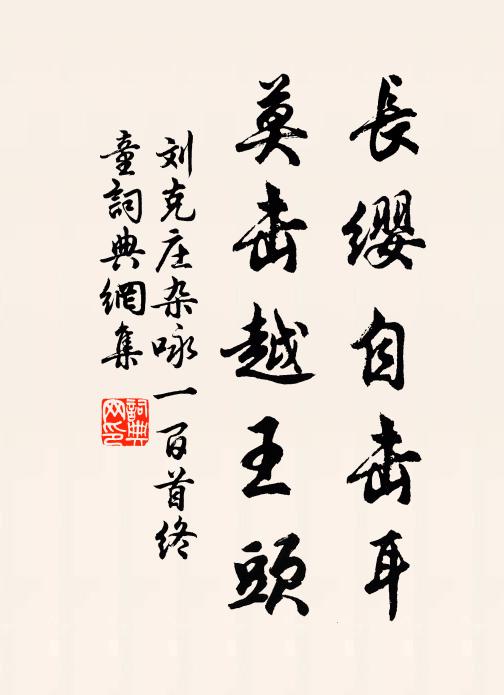 長缨自击耳
莫击越王頭
刘克庄杂咏一百首终
童詞典網集
詞典网印